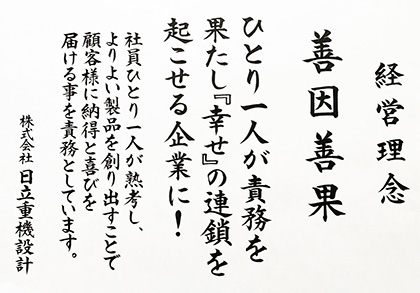 経営理念
善因善果
ひとり一人が責務を
果たし『幸せ』の連鎖を
起こせる企業に！
社員ひとり一人が熟考し、
よりよい製品を創り出すことで
顧客様に納得と喜びを
届ける事を責務としています。
株式会社 日立重機設計